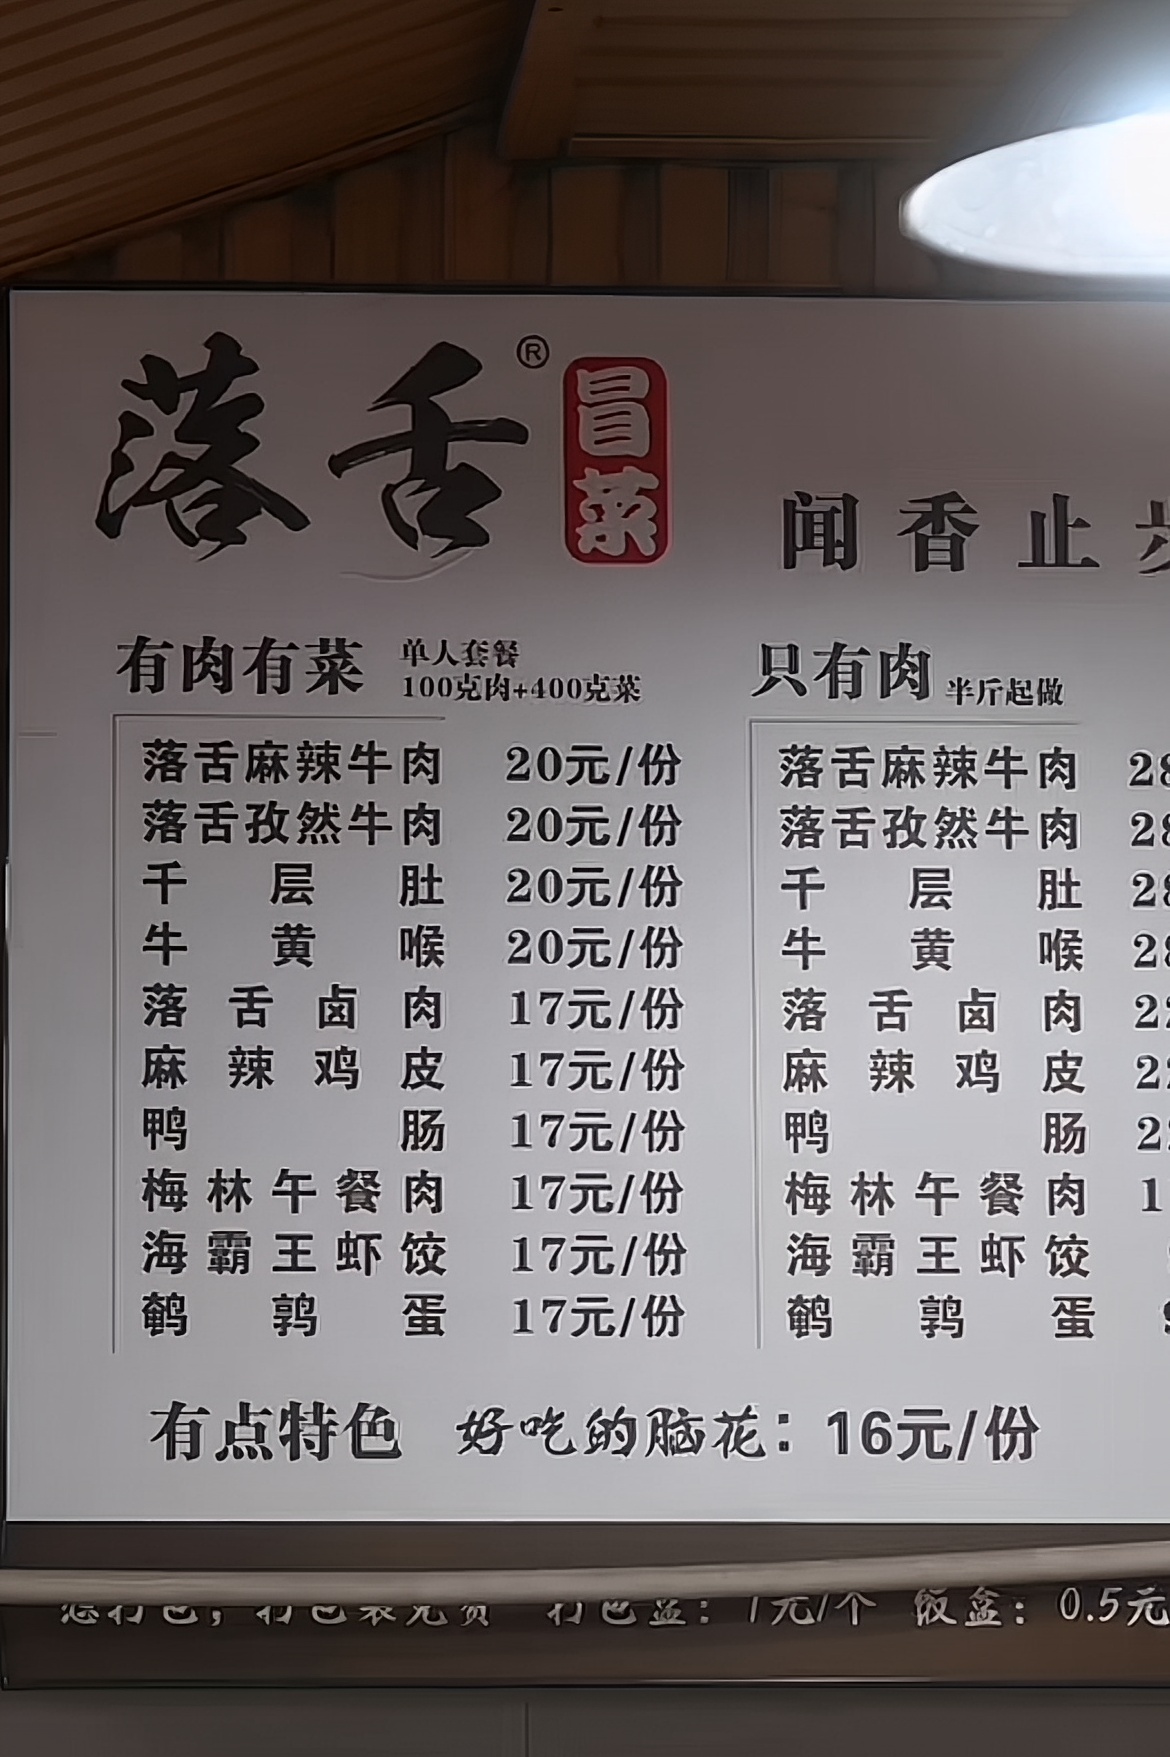 落舌®
冒菜
闻香止步
有肉有菜 单人套餐
100克肉+400克菜
落舌麻辣牛肉 20元/份
落舌孜然牛肉 20元/份
千层肚 20元/份
牛黄喉 20元/份
落舌卤肉 17元/份
麻辣鸡皮 17元/份
鸭肠 17元/份
梅林午餐肉 17元/份
海霸王虾饺 17元/份
鹌鹑蛋 17元/份
只有肉 半斤起做
落舌麻辣牛肉 28
落舌孜然牛肉 28
千层肚 28
牛黄喉 28
落舌卤肉 22
麻辣鸡皮 22
鸭肠 22
梅林午餐肉 1
海霸王虾饺
鹌鹑蛋 9
有点特色 好吃的脑花：16元/份
打包盒：1元/个 饭盒：0.5元